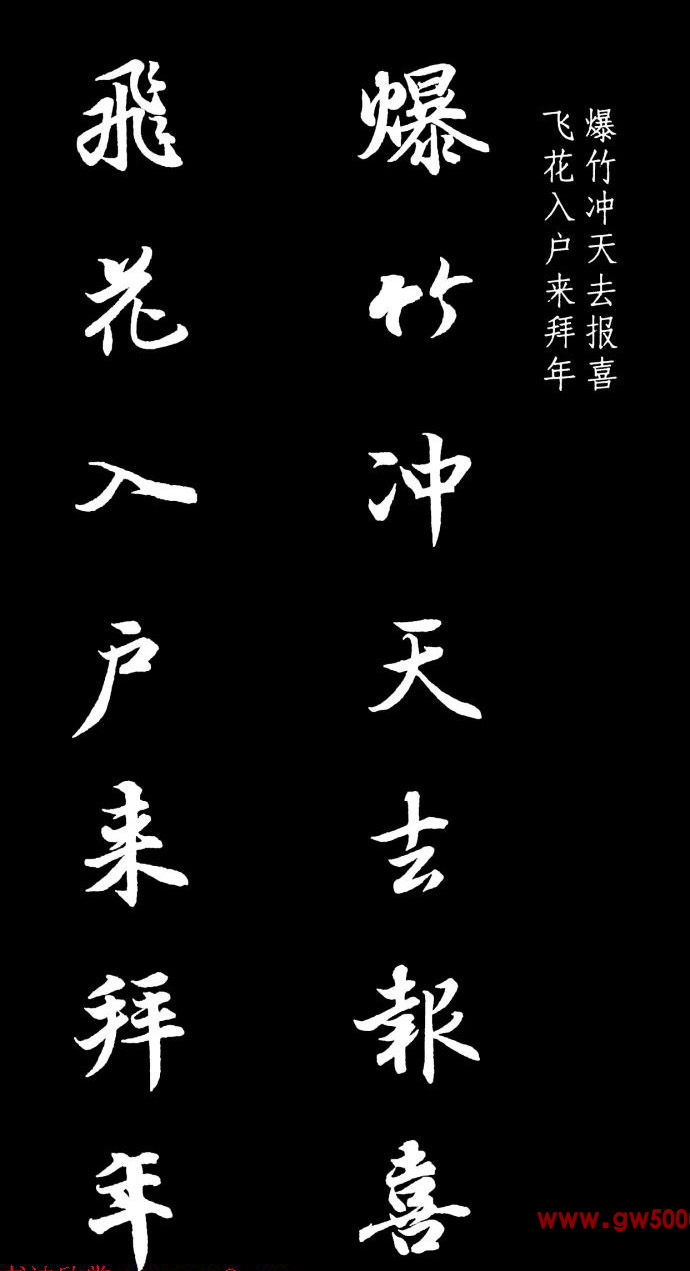 爆竹冲天去报喜
飞花入户来拜年
爆竹冲天去報喜
飛花入户来拜年
www.gw500